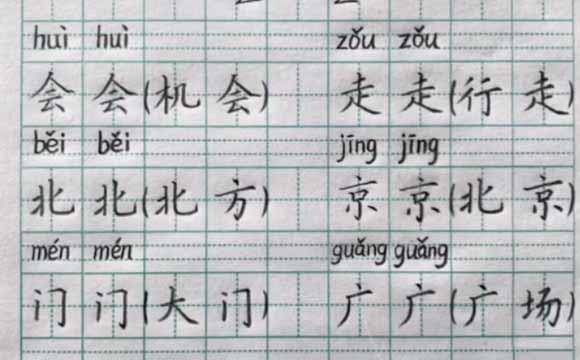 huì huì zǒu zǒu
会 会(机 会) 走 走(行 走)
běi běi jīng jīng
北 北(北 方) 京 京(北 京)
mén mén guǎng guǎng
门 门(大 门) 广 广(广 场)